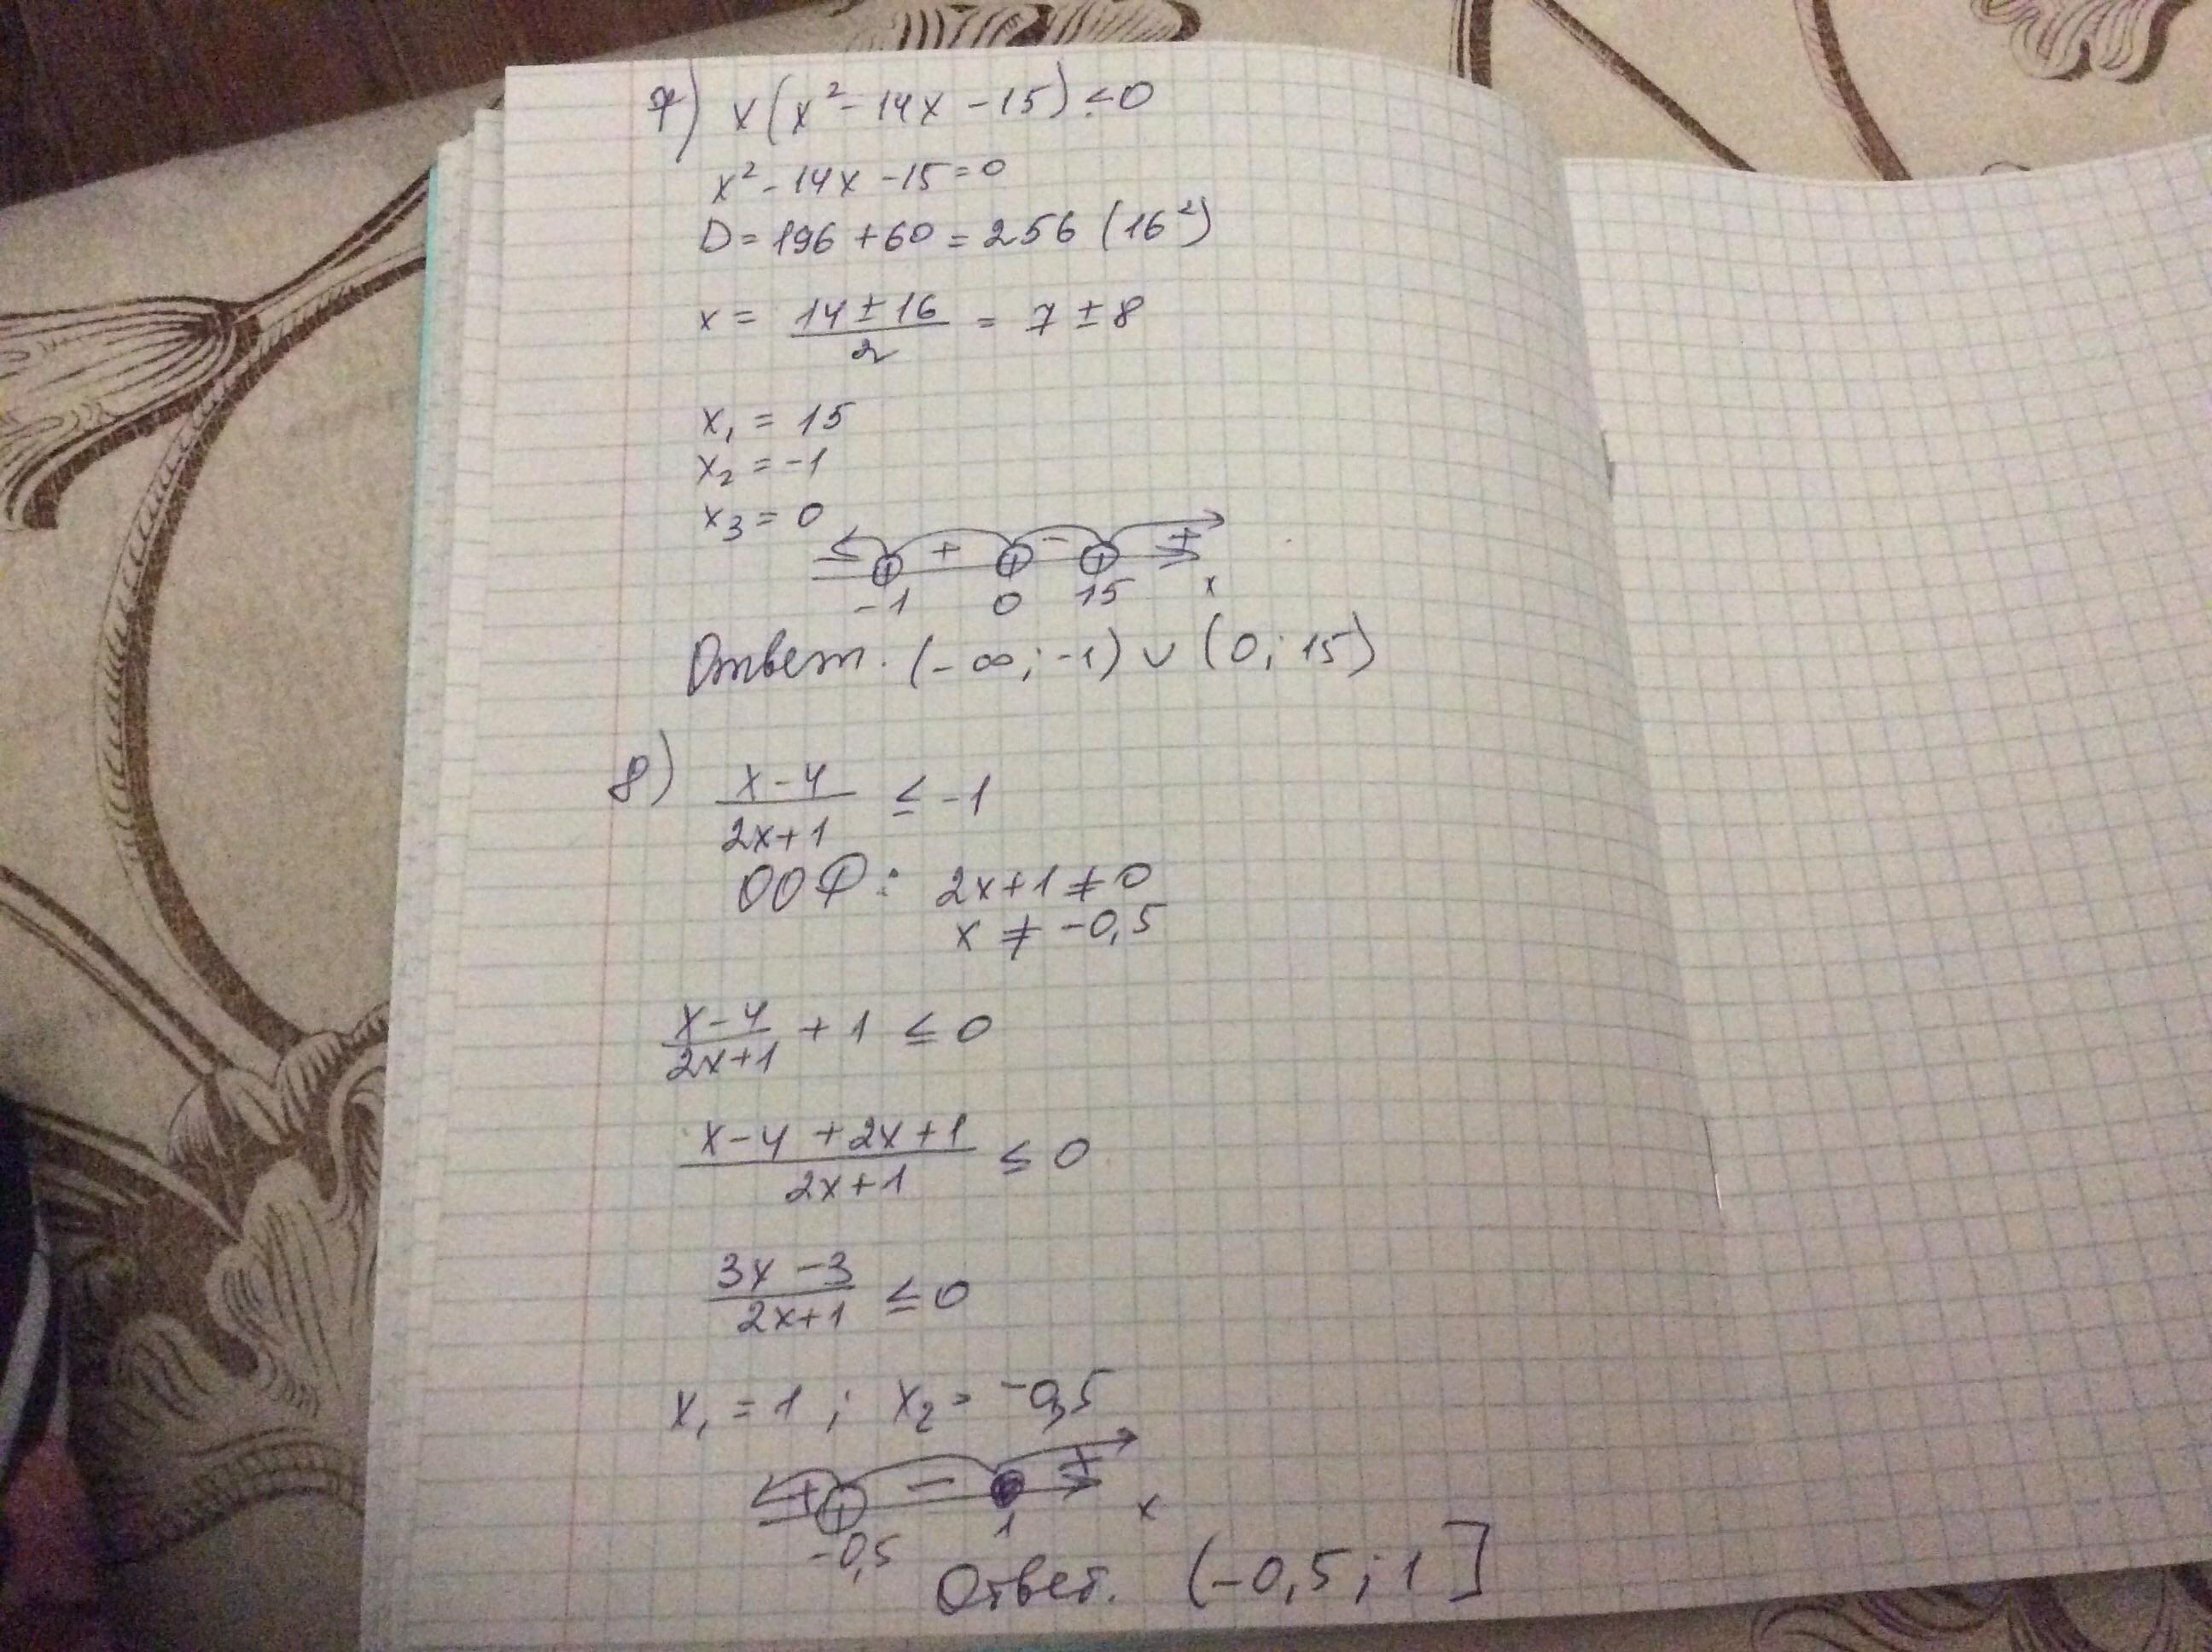 7) x(x² - 14x - 15) < 0
x² - 14x - 15 = 0
D = 196 + 60 = 256 (16²)
x = (14 ± 16)/2 = 7 ± 8
x₁ = 15
x₂ = -1
x₃ = 0
- + - +
-1 0 15 x
Ответ. (-∞; -1) ∪ (0; 15)
8) (x-4)/(2x+1) ≤ -1
ООФ: 2x+1 ≠ 0
x ≠ -0,5
(x-4)/(2x+1) + 1 ≤ 0
(x-4+2x+1)/(2x+1) ≤ 0
(3x-3)/(2x+1) ≤ 0
x₁ = 1; x₂ = -0,5
+ - +
-0,5 1 x
Ответ. (-0,5; 1]